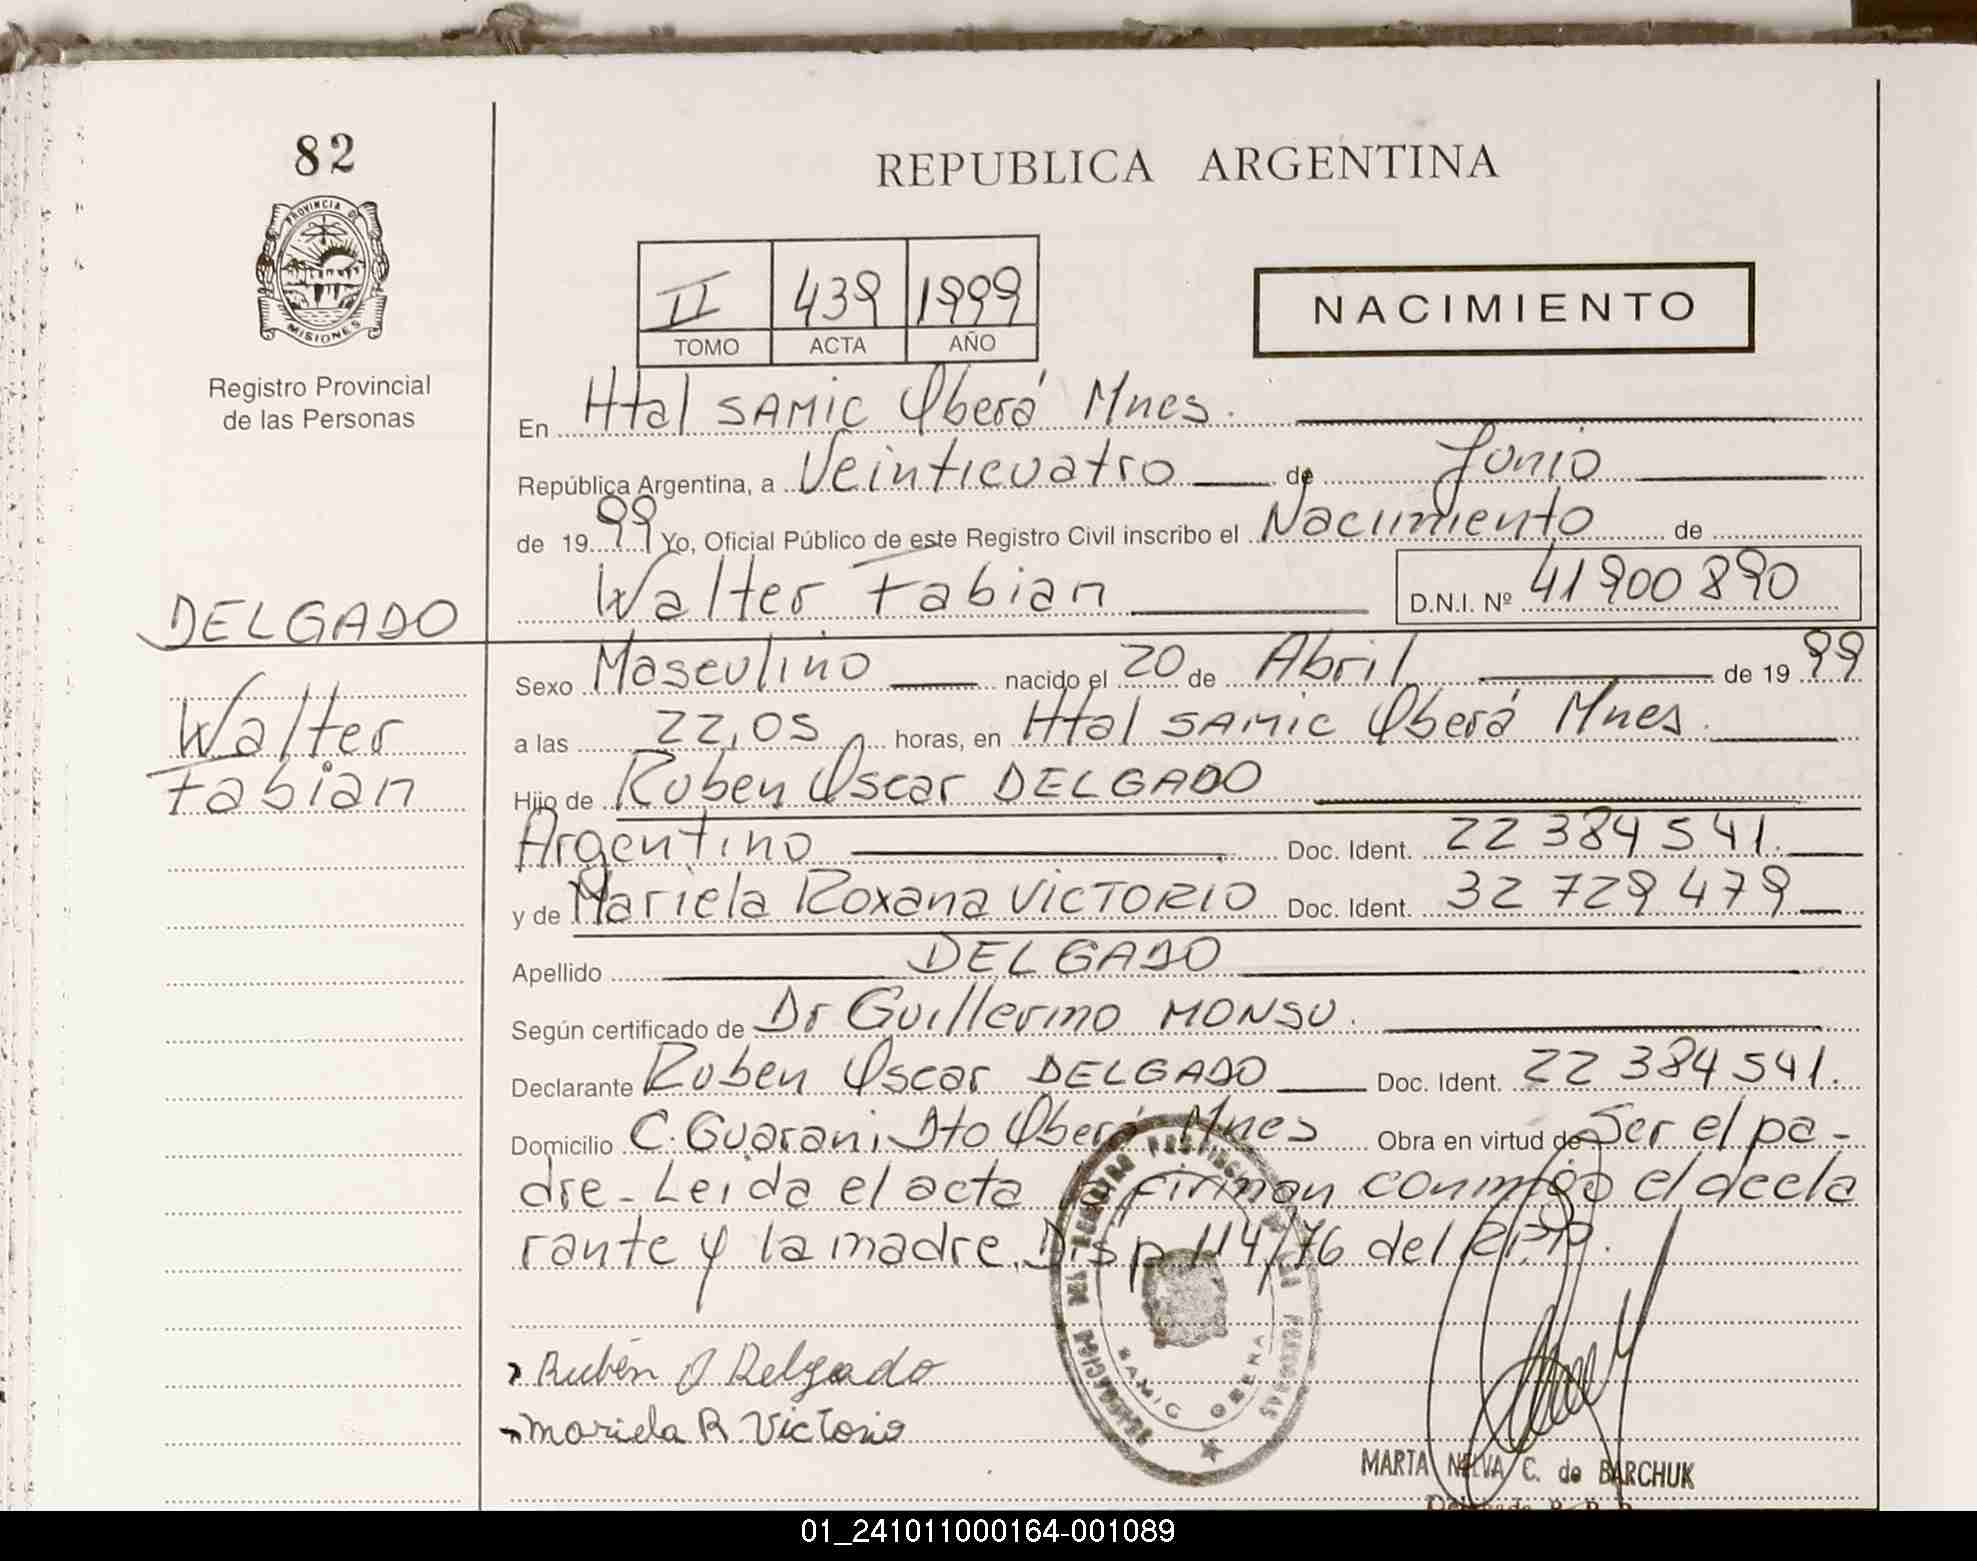 82
PROVINCIA DE
MISIONES
Registro Provincial
de las Personas
REPUBLICA ARGENTINA
II 439 1999
TOMO ACTA AÑO
NACIMIENTO
En Htal SAMIC Oberá Mnes.
República Argentina, a Veinticuatro de Junio
de 1999 Yo, Oficial Público de este Registro Civil inscribo el Nacimiento de
Walter Fabian D.N.I. Nº 41900890
DELGADO
Walter
Fabian
Sexo Masculino nacido el 20 de Abril de 1999
a las 22,05 horas, en Htal SAMIC Oberá Mnes.
Hijo de Ruben Oscar DELGADO
Argentino Doc. Ident. 22384541.
y de Mariela Roxana VICTORIO Doc. Ident. 32729479
Apellido DELGADO
Según certificado de Dr Guillermo MONSU.
Declarante Ruben Oscar DELGADO Doc. Ident. 22384541.
Domicilio C. Guarani Dto Oberá Mnes Obra en virtud de Ser el pa-
dre - Leida el acta la firman conmigo el decla
rante y la madre. Disp 114/76 del RPP.
Rubén O Delgado
Mariela R Victorio
DELEGACION DEL REGISTRO PROVINCIAL DE LAS PERSONAS
SAMIC OBERA
MARTA NELVA C. de BARCHUK
01_241011000164-001089